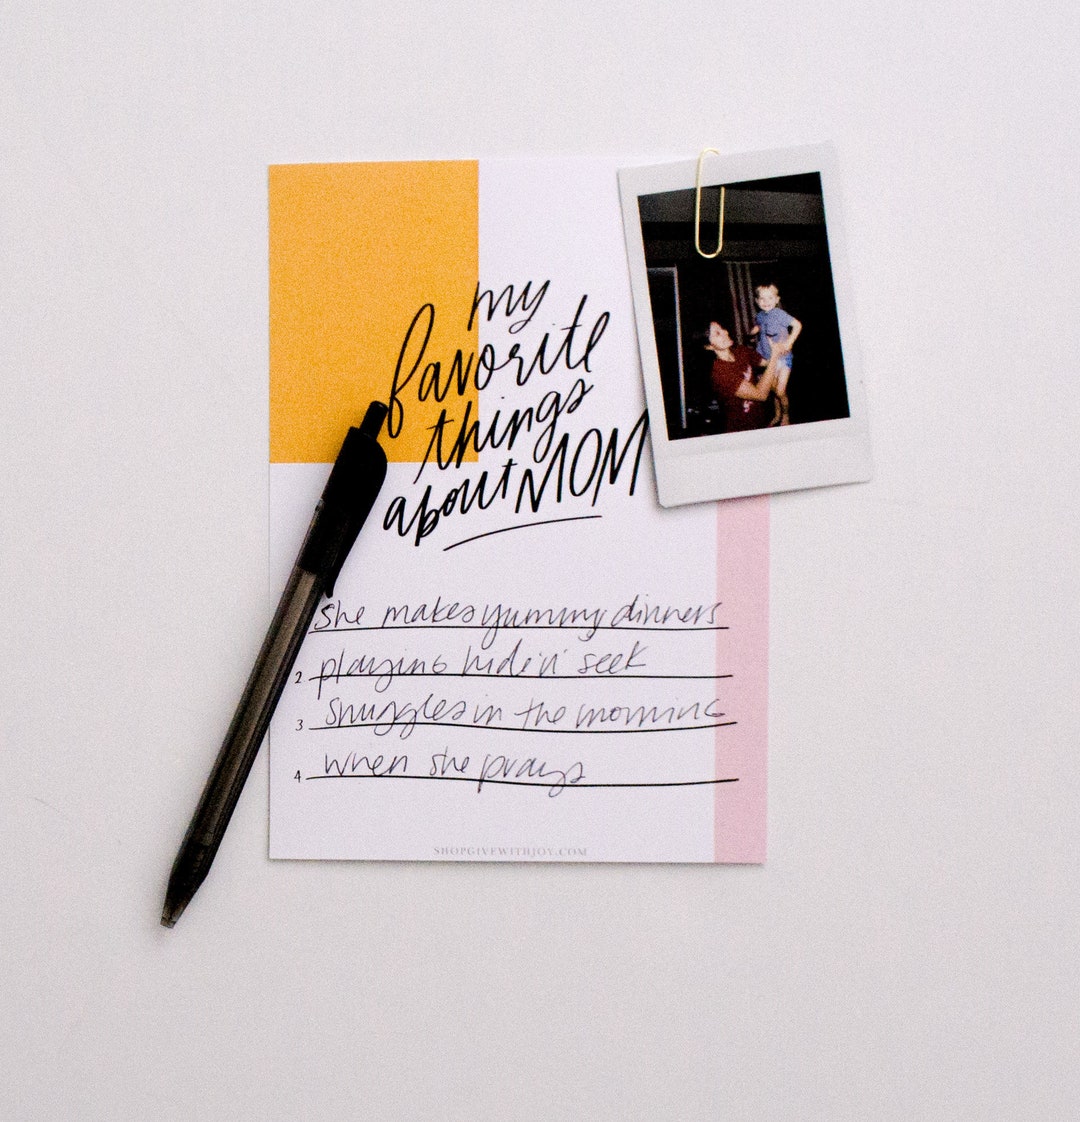 my
favorite
things
about MOM
she makes yummy dinners
2 playing hide 'n' seek
3 snuggles in the morning
4 when she prays
SHOPGIVEWITHJOY.COM